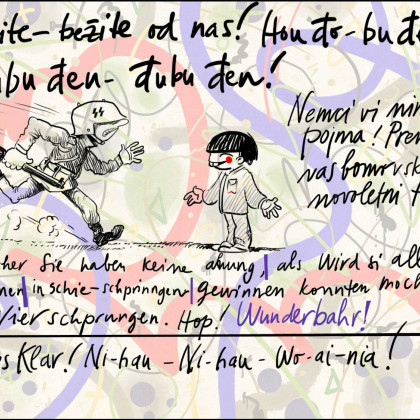 žite-bežite od nas! Hou đo-bu đe
ubu đen- đubu đen!
SS
Nemci vi nim
pojma! Pren
vas bomo vsk
novoletni t
her Sie haben keine ahnung, als Wird si all
nen in schie-schpringen gewinnen konnten moch
Vier schprungen. Hop! Wunderbahr!
s Klar! Ni-hau-Ni-hau-Wo-ai-nia!